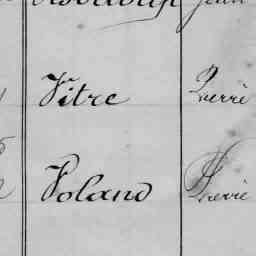 Jean
Vitre Pierre
Voland Pierre